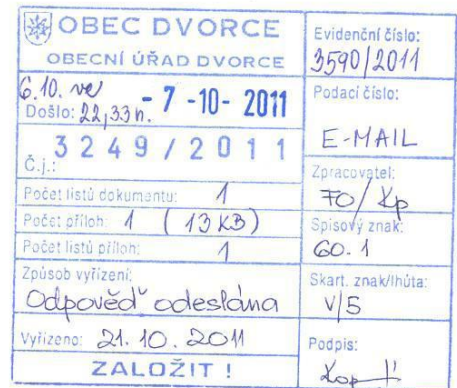 OBEC DVORCE
OBECNÍ ÚŘAD DVORCE
6.10. ve
Došlo: 22,33h. - 7 -10- 2011
3249/2011
Č.j.:
Počet listů dokumentu: 1
Počet příloh: 1 (13 KB)
Počet listů příloh: 1
Způsob vyřízení:
Odpověď odeslána
Vyřízeno: 21. 10. 2011
ZALOŽIT !
Evidenční číslo:
3590/2011
Podací číslo:
E-MAIL
Zpracovatel:
FO/Kp
Spisový znak:
60.1
Skart. znak/lhůta:
V/5
Podpis: